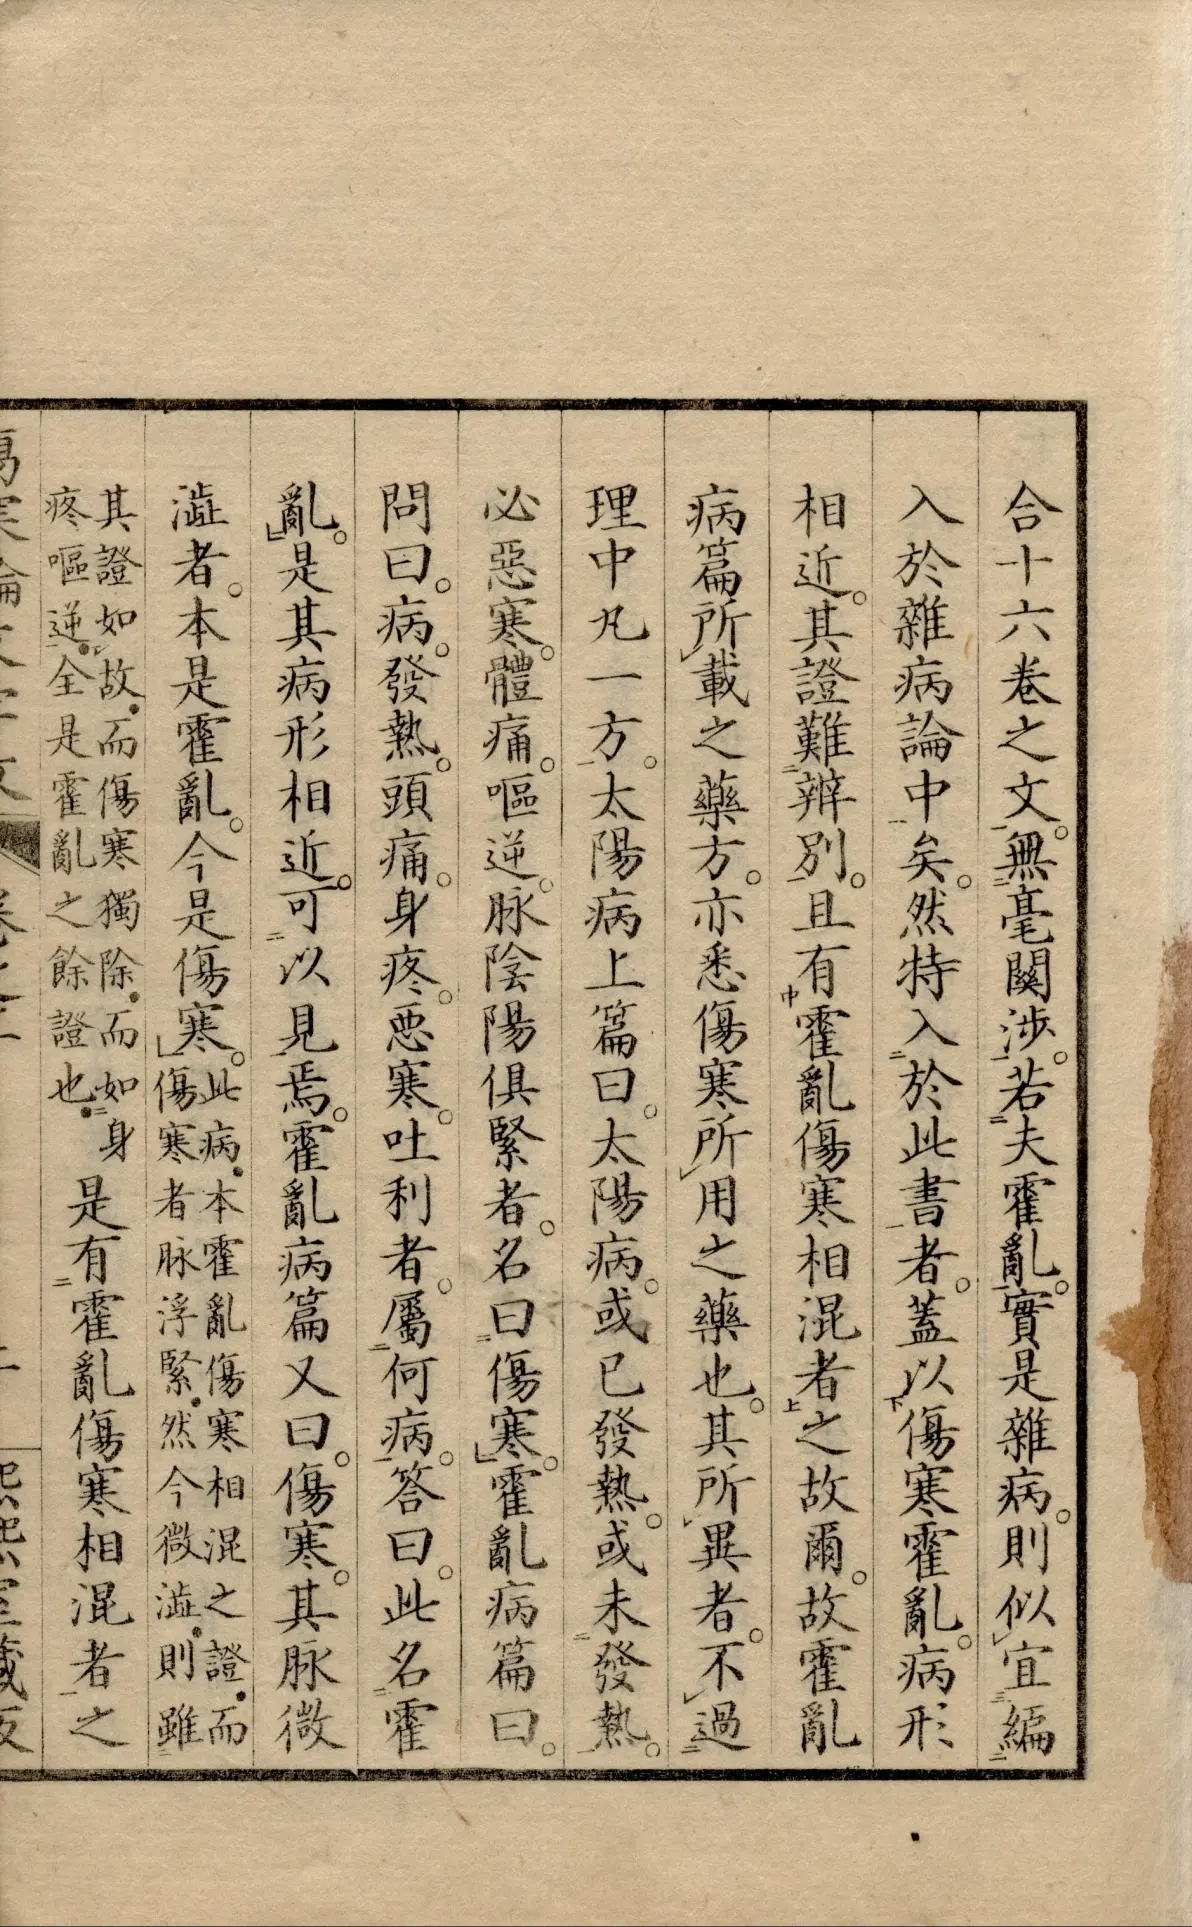 合十六卷之文。無毫關涉。若夫霍亂。實是雜病。則似宜編
入於雜病論中矣。然特入於此書者。蓋以傷寒霍亂。病形
相近。其證難辨別。且有霍亂傷寒相混者之故爾。故霍亂
病篇所載之藥方。亦悉傷寒所用之藥也。其所異者。不過
理中丸一方。太陽病上篇曰。太陽病。或已發熱。或未發熱。
必惡寒。體痛。嘔逆。脉陰陽俱緊者。名曰傷寒。」霍亂病篇曰。
問曰。病。發熱。頭痛。身疼。惡寒。吐利者。屬何病。答曰。此名霍
亂。」是其病形相近。可以見焉。霍亂病篇又曰。傷寒。其脉微
澁者。本是霍亂。今是傷寒。」此病。本霍亂傷寒相混之證。而
傷寒者脉浮緊。然今微澁。則雖
其證如故。而傷寒獨除。而如身
疼嘔逆。全是霍亂之餘證也。
是有霍亂傷寒相混者之